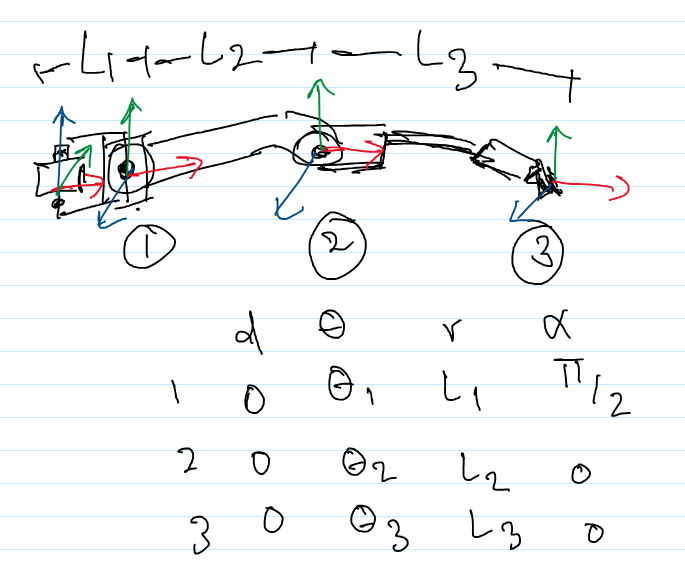 L1 L2 L3
① ② ③
d θ r α
1 0 θ1 L1 π/2
2 0 θ2 L2 0
3 0 θ3 L3 0